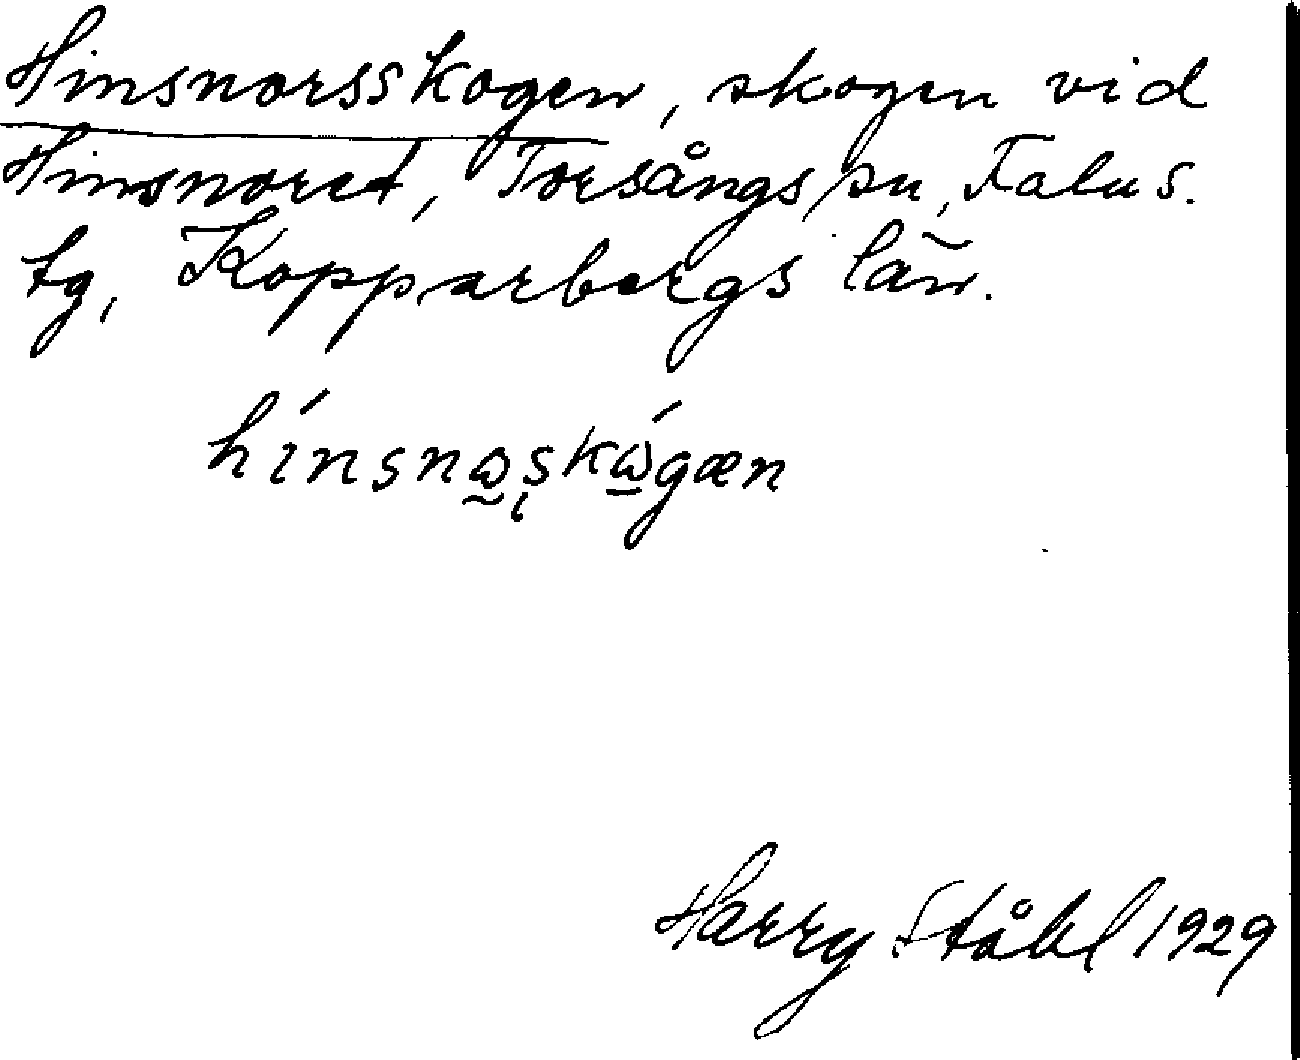 Hinsnorsskogen, skogen vid
Hinsnoret, Torsångs sn, Falu s.
tg, Kopparbergs län.
hínsnꞷ̰ʂkꞷ̱́gæn
Harry Ståhl 1929